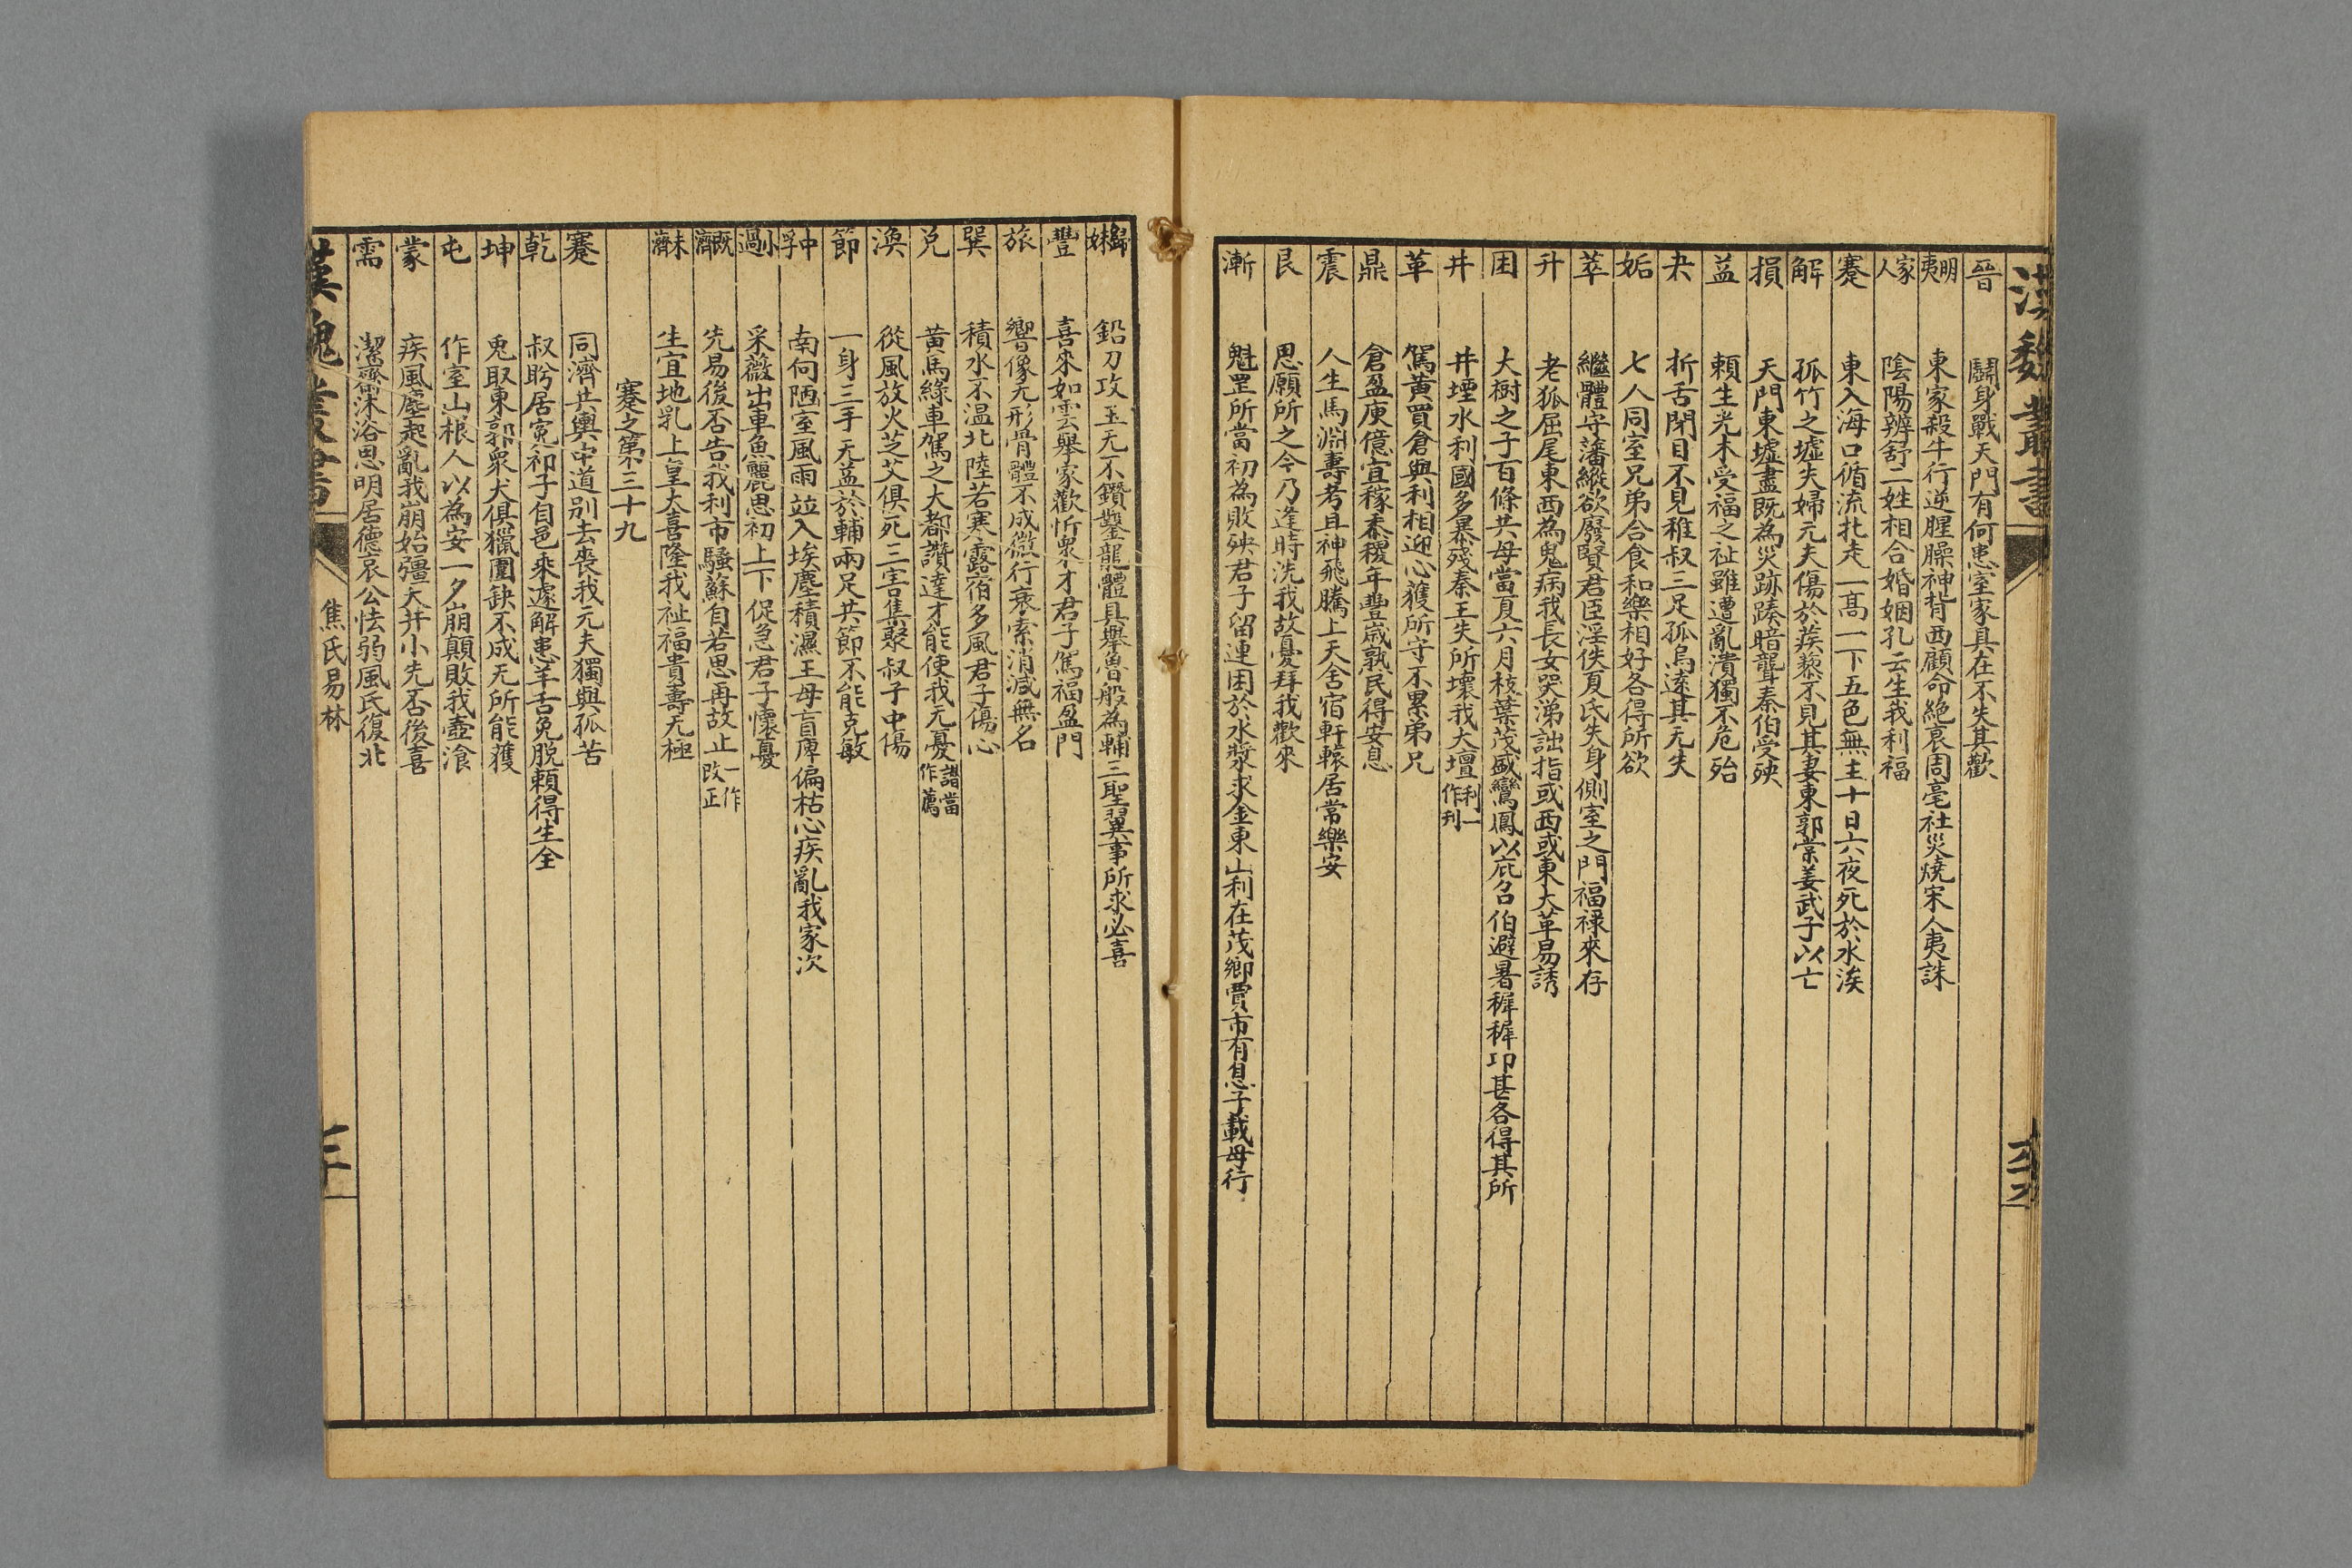 漢魏叢書
晉 鬪身戰天門有何患室家具在不失其歡
明夷 東家殺牛行逆腥臊神背西顧命絶衰周亳社災燒宋人夷誅
家人 陰陽辨舒二姓相合婚姻孔云生我利福
蹇 東入海口循流北走一高一下五色無主十日六夜死於水涘
解 孤竹之墟夫婦元夫傷於蒺藜不見其妻東郭棠姜武子以亡
損 天門東墟盡既為災跡踤暗聾秦伯受殃
益 賴生光木受福之祉雖遭亂潰獨不危殆
夬 折舌閉目不見稚叔三足孤烏遠其元夫
姤 七人同室兄弟合食和樂相好各得所欲
萃 繼體守藩縱欲廢賢君臣淫佚夏氏失身側室之門福禄來存
升 老狐屈尾東西為鬼病我長女哭涕詘指或西或東大革易誘
困 大樹之子百條共母當夏六月枝葉茂盛鸞鳳以庇召伯避暑稺稺卬甚各得其所
井 井堙水利國多暴殘秦王失所壞我大壇利一作刋
革 駕黃買倉與利相迎心獲所守不累弟兄
鼎 倉盈庾億宜稼黍稷年豐歲熟民得安息
震 人生馬淵壽考且神飛騰上天舍宿軒轅居常樂安
艮 思願所之今乃逢時洗我故憂拜我歡來
漸 魁罡所當初為敗殃君子留連困於水漿求金東山利在茂鄉賈市有息子載母行
歸妹 鉛刀攻玉无不鑽鑿龍體具舉魯般為輔三聖翼事所求必喜
豐 喜來如雲舉家歡忻衆才君子駕福盈門
旅 響像无形骨體不成微行衰索消減無名
巽 積水不温北陸若寒露宿多風君子傷心
兌 黃馬綠車駕之大都讚達才能使我无憂譛當作薦
渙 從風放火芝艾俱死三害集聚叔子中傷
節 一身三手无益於輔兩足共節不能克敏
中孚 南向陋室風雨並入埃塵積濕王母盲痺偏枯心疾亂我家次
小過 采薇出車魚麗思初上下促急君子懷憂
既濟 先易後否告我利市騷蘇自若思再故止一作改正
未濟 生宜地乳上皇大喜隆我祉福貴壽无極
蹇之第三十九
蹇 同濟共輿中道别去喪我元夫獨與孤苦
乾 叔盻居寃祁子自邑乘遽解患羊舌免脱賴得生全
坤 兎聚東郭衆犬俱獵圍缺不成无所能獲
屯 作室山根人以為安一夕崩顛敗我壺飡
蒙 疾風塵起亂我崩始彊大并小先否後喜
需 潔齋沐浴思明居德哀公怯弱風氏復北
漢魏叢書 焦氏易林